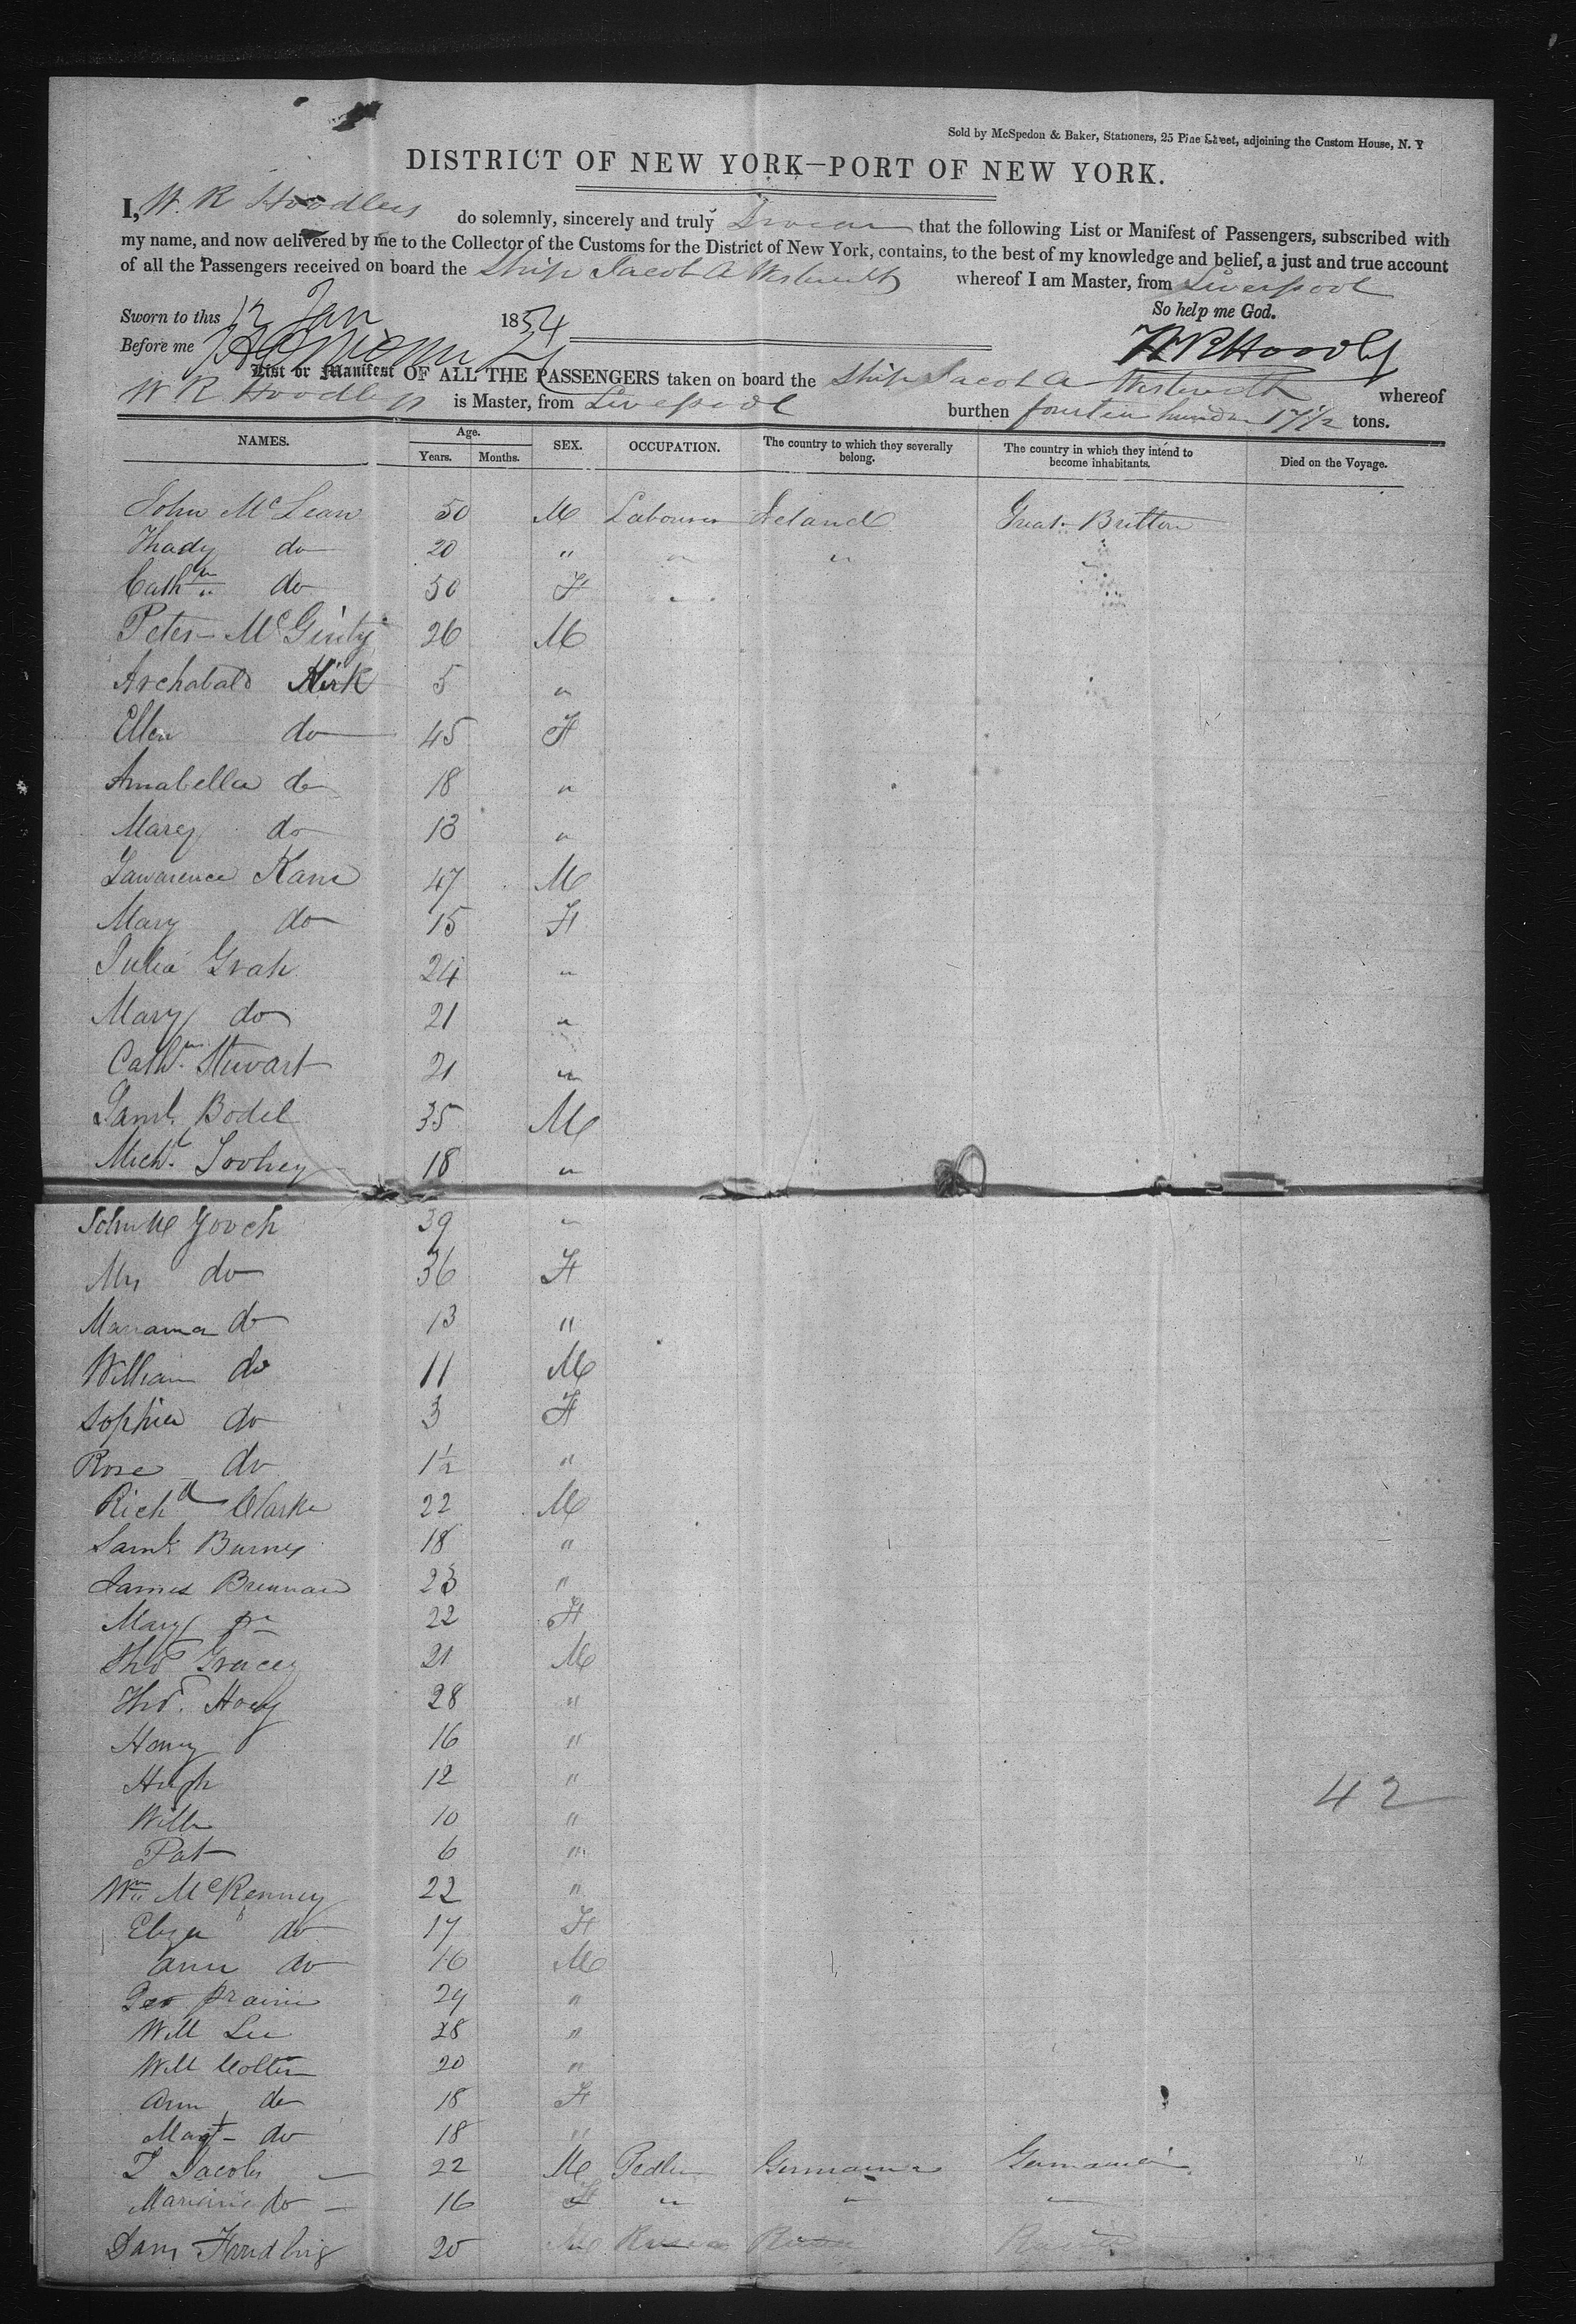 Sold by McSpedon & Baker, Stationers, 25 Pine Street, adjoining the Custom House, N. Y
DISTRICT OF NEW YORK—PORT OF NEW YORK.
I, W. R Hoodless do solemnly, sincerely and truly Swear that the following List or Manifest of Passengers, subscribed with
my name, and now delivered by me to the Collector of the Customs for the District of New York, contains, to the best of my knowledge and belief, a just and true account
of all the Passengers received on board the Ship Jacob A Westervelt whereof I am Master, from Liverpool
So help me God.
Sworn to this 12 Jan 1854
Before me
List or Manifest OF ALL THE PASSENGERS taken on board the Ship Jacob A Westervelt whereof
W R is Master, from Liverpool burthen fourteen hundr 17 1/2 tons.
NAMES. Age. SEX. OCCUPATION. The country to which they severally belong. The country in which they intend to become inhabitants. Died on the Voyage.
Years. Months.
John McLean 50 M Labourer Ireland Great Britton
Thady do 20 " " "
Cathn do 50 F "
Peter McGinty 26 M
Archabald Kirk 5 "
Ellen do 45 F
Anabella do 18 "
Mary do 13 "
Lawarence Kane 47 M
Mary do 15 F
Julia Grah 24 "
Mary do 21 "
Cathn Stuvart 21 "
Saml. Bodel 35 M
Michl. Toohey 18 "
John M Gooch 39 "
Mrs do 36 F
Marianna do 13 "
William do 11 M
Sophia do 3 F
Rose do 1½ "
Richd Clarke 22 M
Saml. Burnes 18 "
James Brennan 23 "
Mary Do 22 F
Thos Gracey 21 M
Thos. Hoey 28 "
Henry 16 "
Hugh 12 "
Willm 10 "
42
Pat 6 "
Wm McKenney 22 "
Eliza do 17 F
Ann do 16 M
Geo Prairie 24 "
Will Lee 28 "
Will Colter 20 "
Ann do 18 F
Magt do 18 "
I Jacobs 22 M Pedler Germania Germania "
Mariana do 16 F " " "
20 M Russia